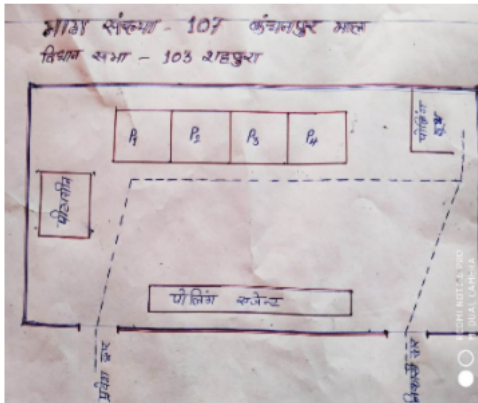 भाग संख्या - 107 कंचनपुर माल
विधान सभा - 103 शहपुरा
P1 P2 P3 P4
पोलिंग बूथ
पीठासीन
पोलिंग एजेन्ट
प्रवेश द्वार
निकासी द्वार
REDMI NOTE 6 PRO
MI DUAL CAMERA